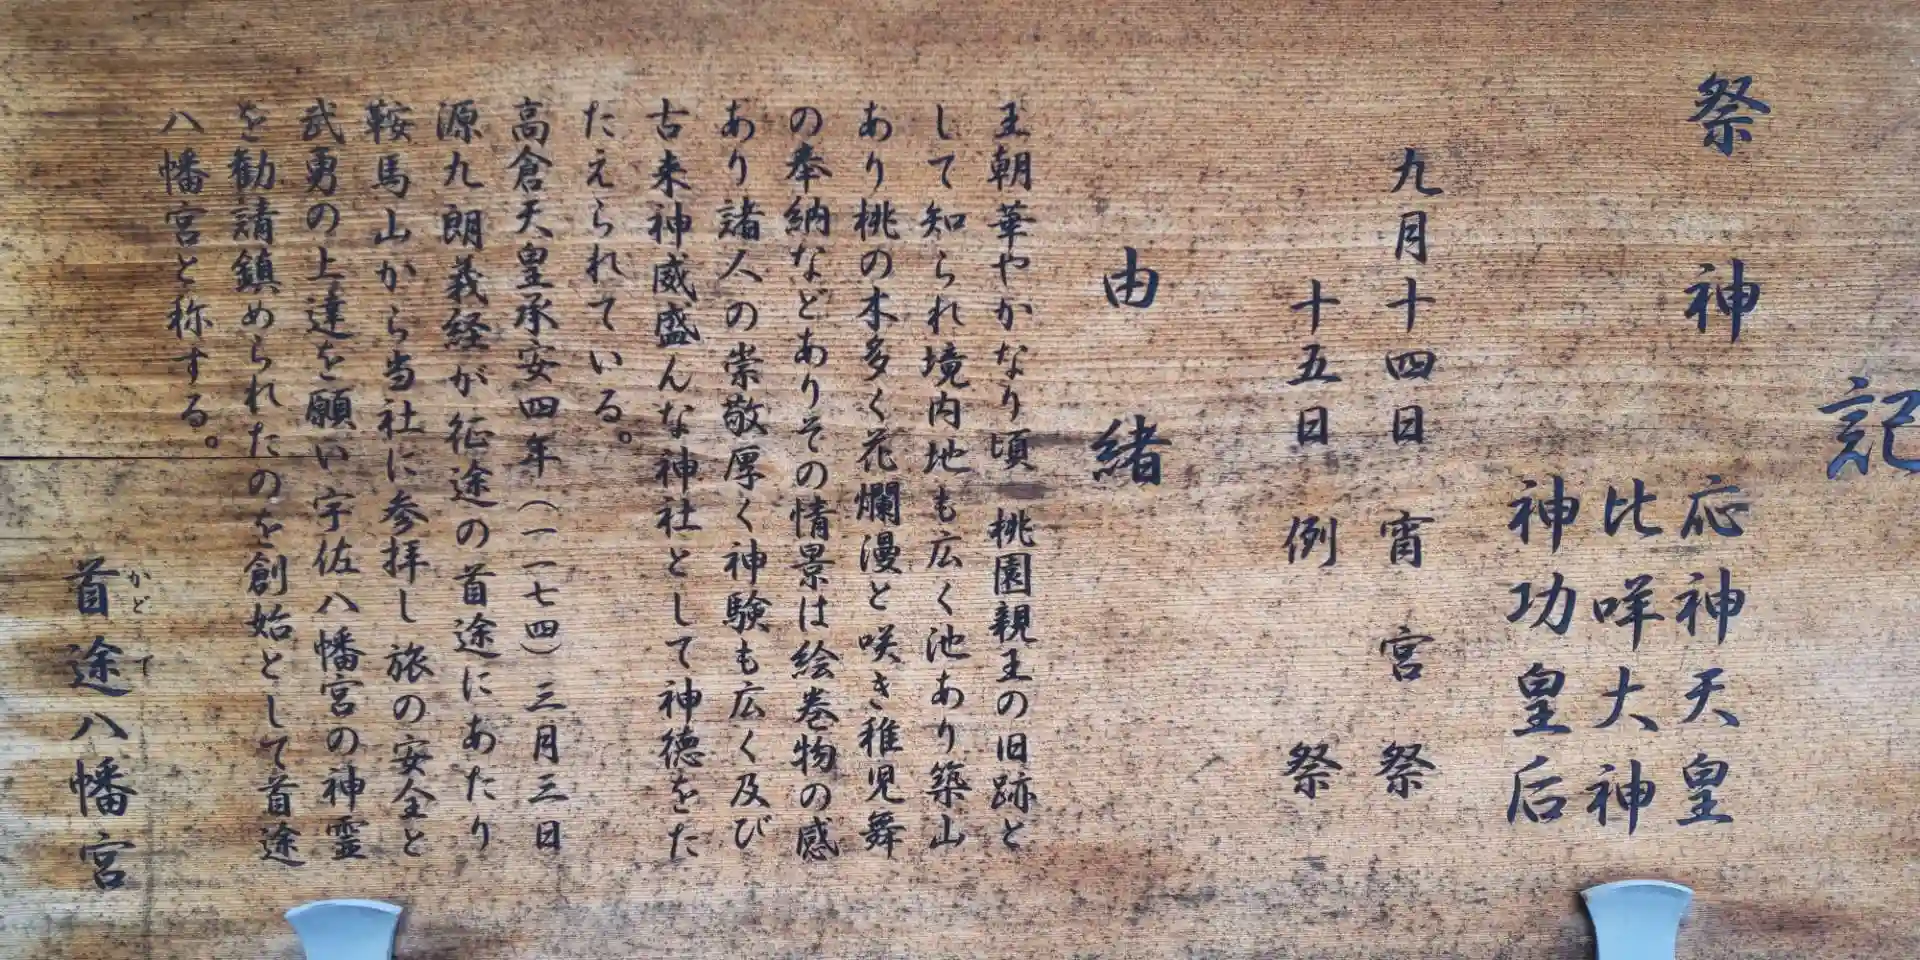 記
祭神
応神天皇
比咩大神
神功皇后
九月十四日 宵宮祭
十五日 例祭
由緒
王朝華やかなり頃 桃園親王の旧跡と
して知られ境内地も広く池あり築山
あり桃の木多く花爛漫と咲き稚児舞
の奉納などありその情景は絵巻物の感
あり諸人の崇敬厚く神験も広く及び
古来神威盛んな神社として神徳をた
たえられている。
高倉天皇承安四年(一一七四)三月三日
源九朗義経が征途の首途にあたり
鞍馬山から当社に参拝し旅の安全と
武勇の上達を願い宇佐八幡宮の神霊
を勧請鎮められたのを創始として首途
八幡宮と称する。
かどで
首途八幡宮